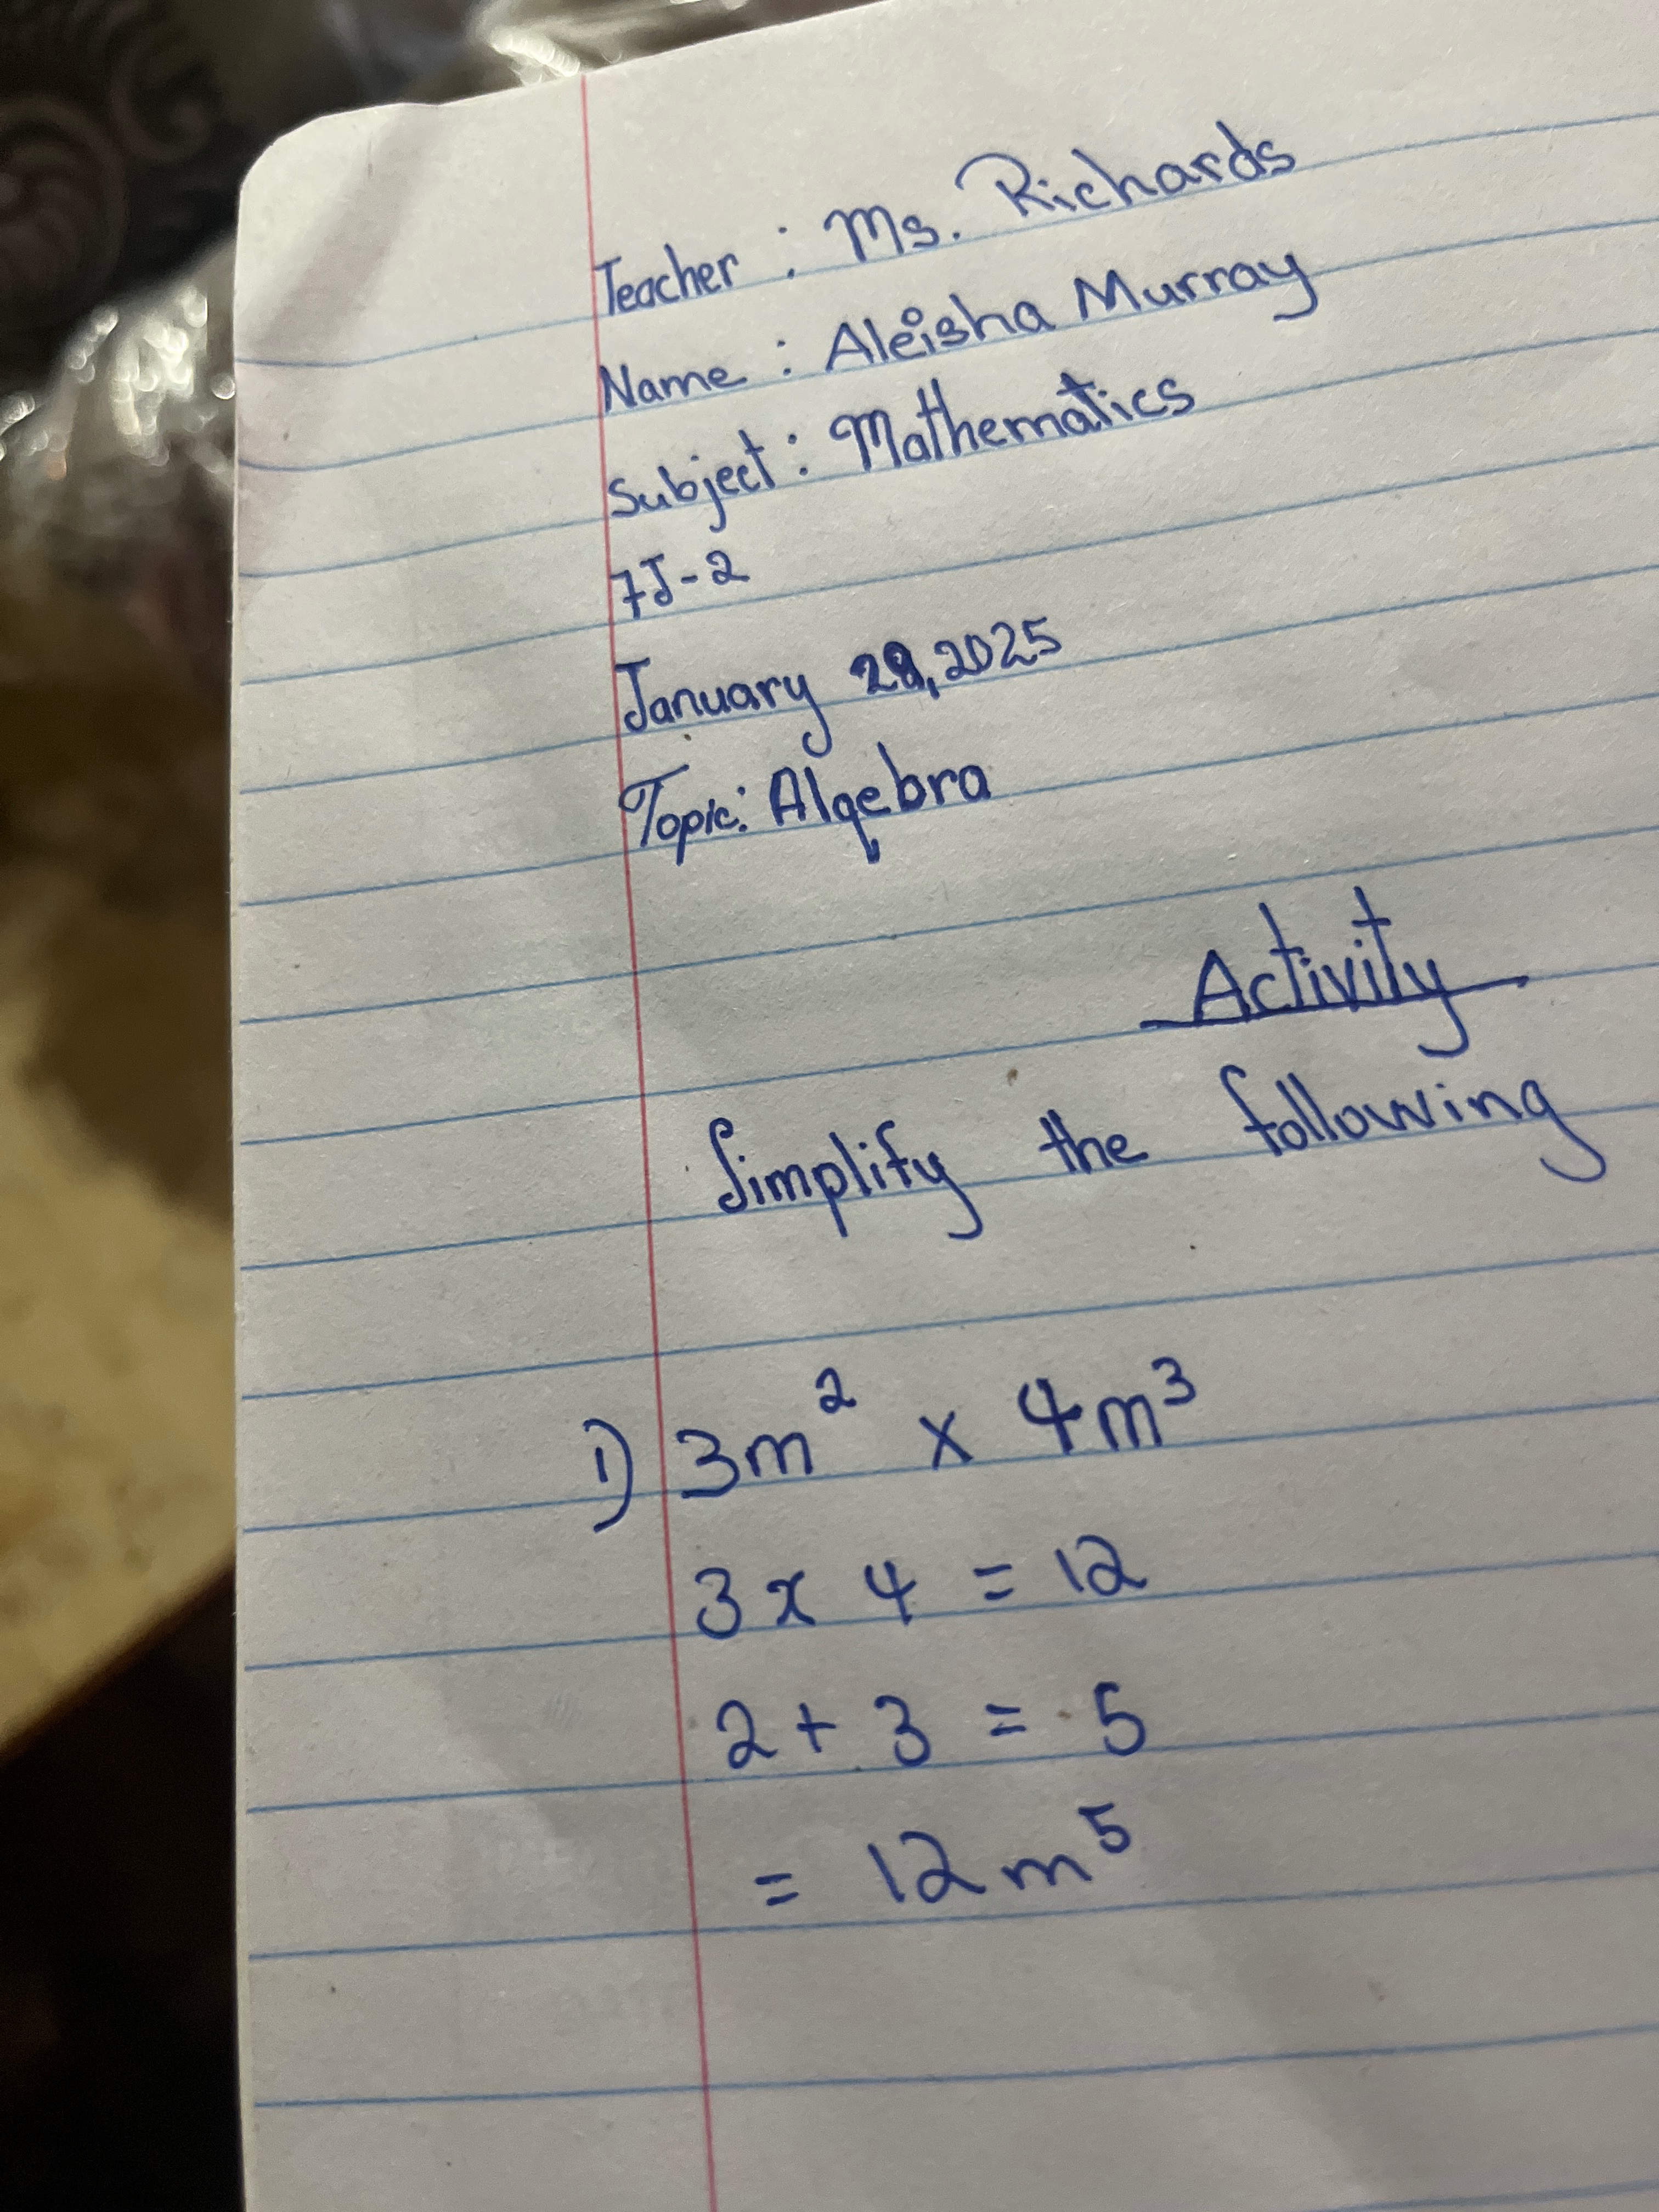 Teacher : Ms. Richards
Name : Aleisha Murray
Subject : Mathematics
7J-2
January 28, 2025
Topic: Algebra
Activity
Simplify the following
1) 3m² x 4m³
3 x 4 = 12
2 + 3 = 5
= 12m⁵